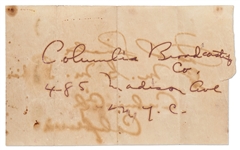 Columbia Broadcasting
Co.
485 Madison Ave
N.Y.C.